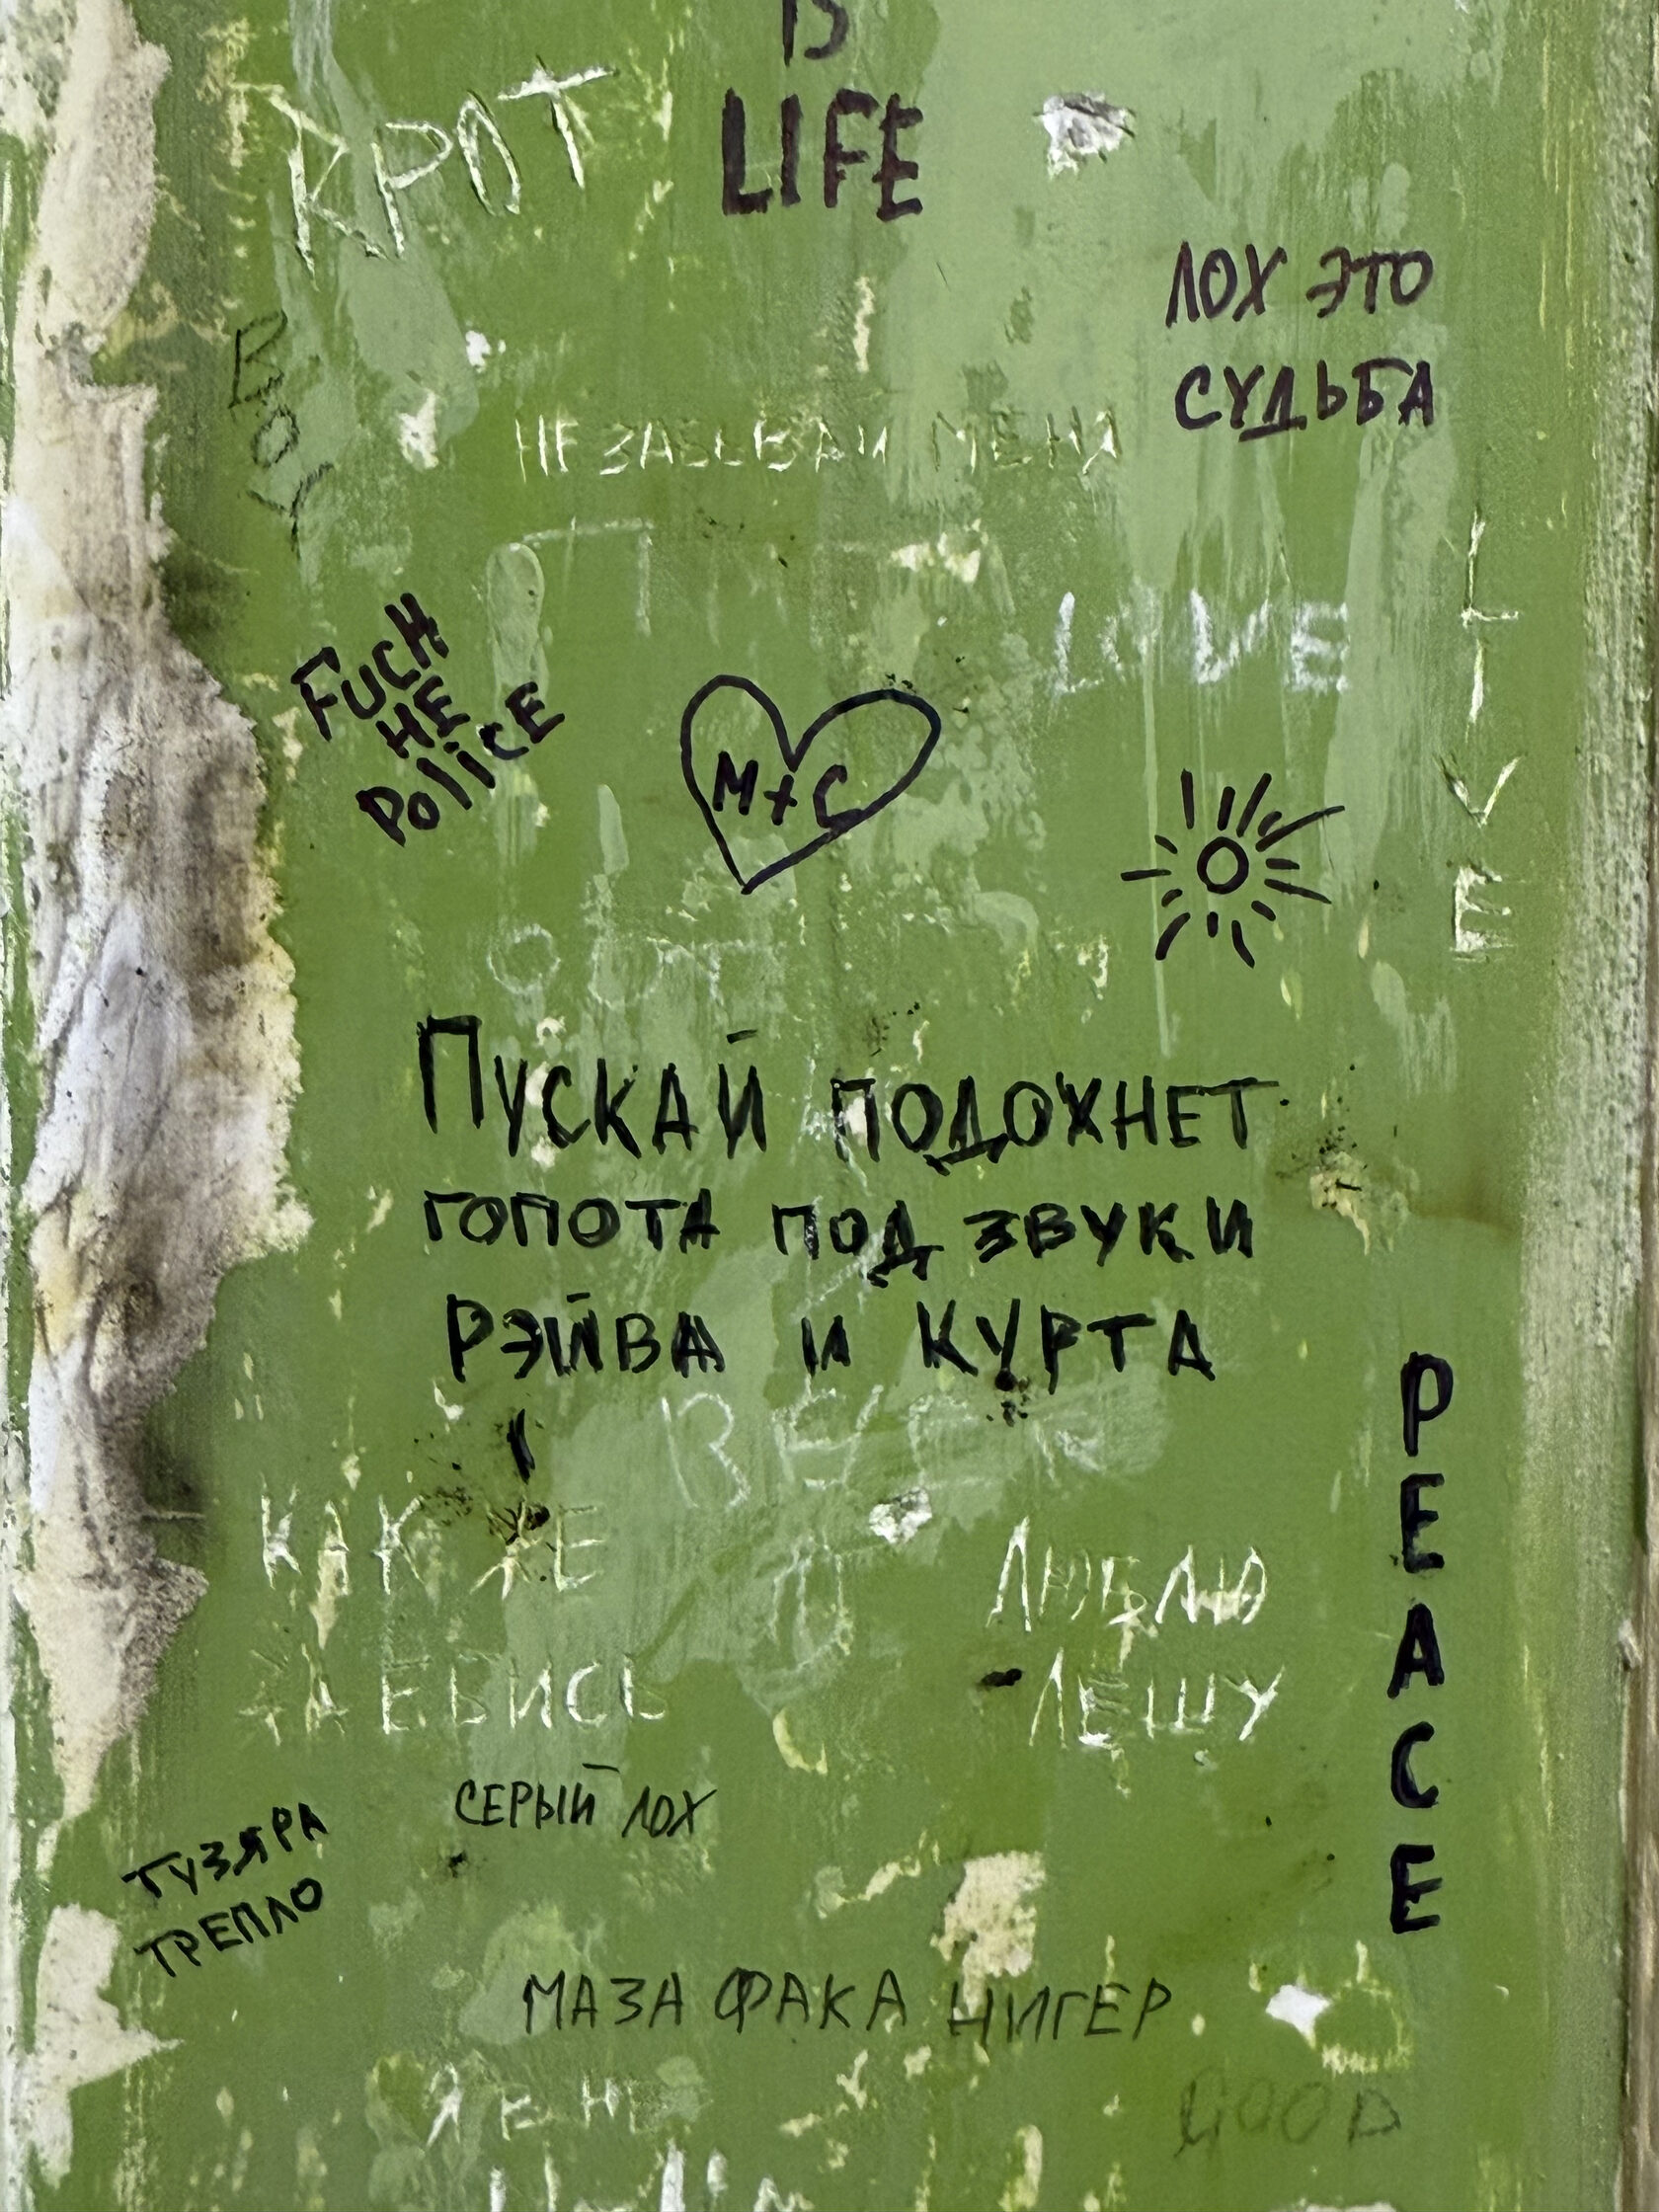 IS
LIFE
КРОТ
ЛОХ ЭТО
СУДЬБА
BOY
НЕ ЗАБЫВАЙ МЕНЯ
LOVE
FUCH
HE
PoliCE
M+C
LIVE
Пускай подохнет
гопота под звуки
рэйва и Курта
PEACE
КАК ЖЕ
ЗАЕБИСЬ
ЛЮБЛЮ
ЛЁШУ
СЕРЫЙ ЛОХ
ТУЗЯРА
ТРЕПЛО
МАЗА ФАКА НИГЕР
GOOD